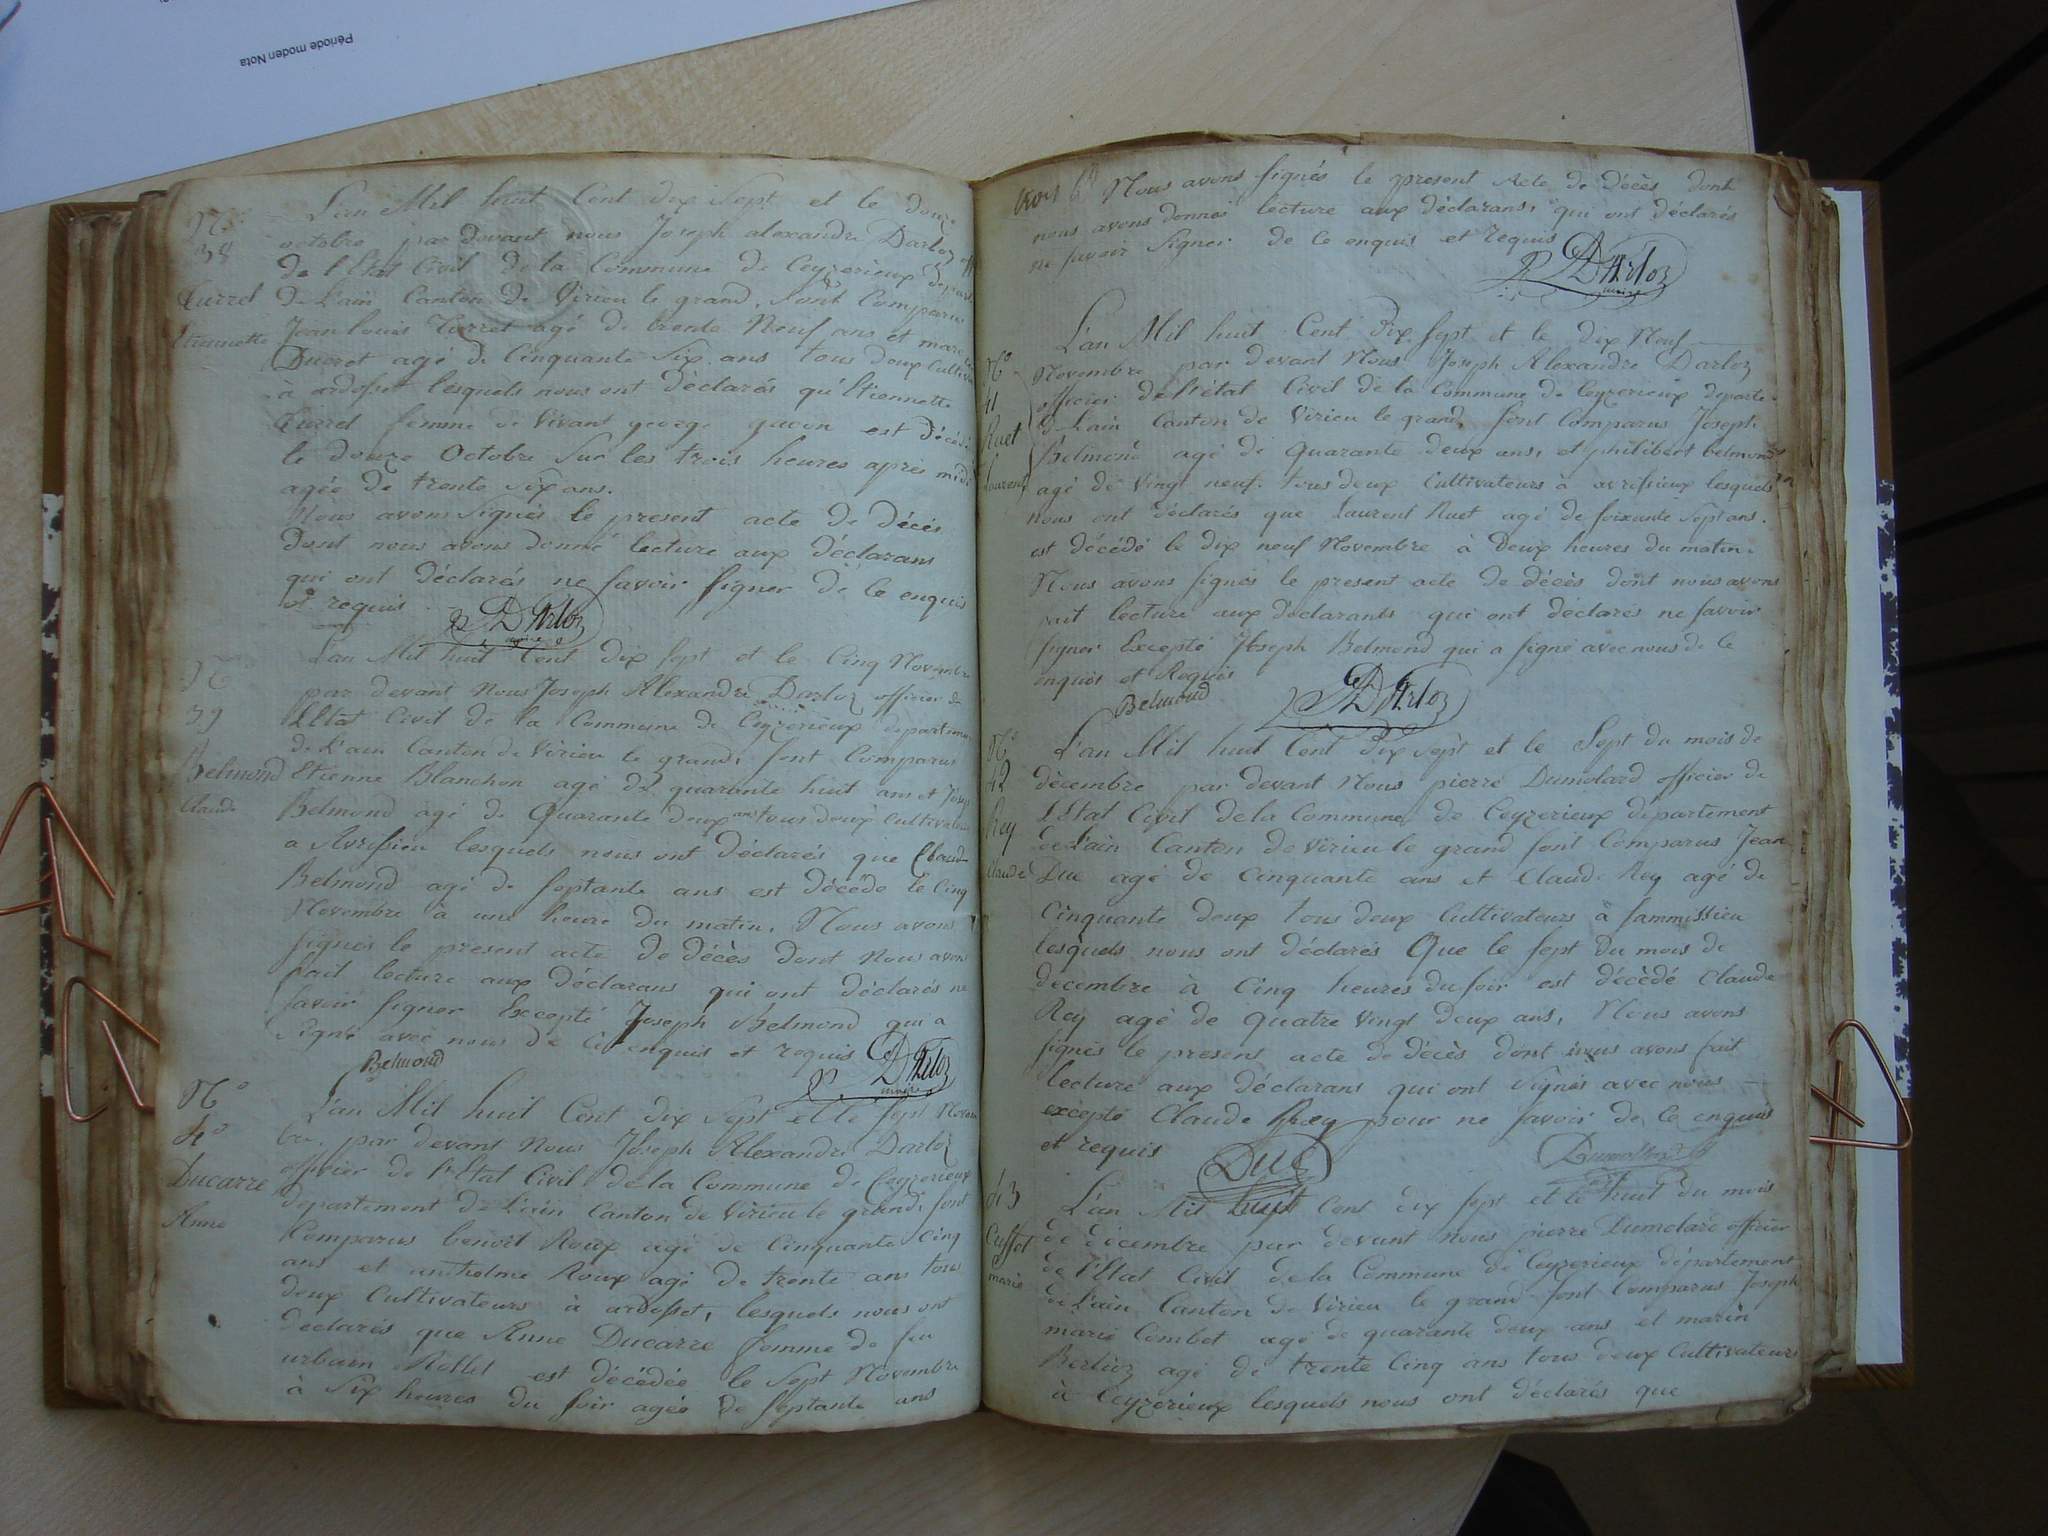 Période moden Nota
L'an Mil huit Cent dix Sept et le douze
N.o octobre par devant nous Joseph alexandre Darloz off
38 de l'Etat Civil de la Commune de Ceyzerieux depart
Curret de L'ain Canton de Virieu le grand, sont Comparu
Etiennette Jean louis Curret agé de trente Neuf ans et
Ducret agé de Cinquante Six ans tous deux Cultiv
à ardosset lesquels nous ont déclarés qu'Etiennette
Curret femme de Vivant george gacon est décédé
le douze Octobre Sur les trois heures après midi
agée de trente Six ans.
Nous avons Signés le present acte de décès
dont nous avons donné lecture aux déclarans
qui ont déclarés ne savoir signer de ce enquis
et requis
DArloz
maire
L'an Mil huit Cent dix sept et le Cinq Novembre
N.o par devant Nous Joseph Alexandre Darloz officier de
39 l'Etat Civil de la Commune de Ceyzerieux departem
de L'ain Canton de Virieu le grand, sont Comparus
Belmond Etienne Blanchon agé de quarante huit ans et Josep
Claude Belmond agé de Quarante deux ans tous deux Cultivateurs
a Avrissieu lesquels nous ont déclarés que Claude
Belmond agé de septante ans est décédé le Cinq
Novembre à une heure du matin, Nous avons
signés le present acte de décès dont Nous avons
fait lecture aux déclarans qui ont déclarés ne
savoir signer Excepté Joseph Belmond qui a
Signé avec nous de Ce enquis et requis
Belmond
DArloz
maire
N.o L'an Mil huit Cent dix Sept et le sept Novem
40 bre, par devant Nous Joseph Alexandre Darloz
officier de l'Etat Civil de la Commune de Ceyzerieux
Ducarre departement de L'ain Canton de Virieu le grand, sont
Anne Comparus benoit Roux agé de Cinquante Cinq
ans et anthelme Roux agé de trente ans tous
deux Cultivateurs à ardosset, lesquels nous ont
déclarés que Anne Ducarre femme de feu
urbain Rollet est décédée le Sept Novembre
à Six heures du soir agée de septante ans
trois Nous avons signés le present Acte de décès dont
nous avons donné lecture aux déclarans, qui ont déclarés
ne savoir Signer de Ce enquis et requis
DArloz
maire
L'an Mil huit Cent Dix sept et le dix Neuf
N.o Novembre par devant Nous Joseph Alexandre Darloz
41 officier de l'état Civil de la Commune de Ceyzerieux departe
d L'ain Canton de Virieu le grand, sont Comparus Joseph
Ruet Belmond agé de quarante deux ans, et philibert belmond
Laurent agé de Vingt neuf tous deux Cultivateurs à avrissieux lesquels
nous ont déclarés que laurent Ruet agé de soixante Sept ans.
est décédé le dix neuf Novembre à Deux heures du matin.
Nous avons signés le present acte de décès dont nous avons
fait lecture aux déclarants qui ont déclarés ne savoir
signer Excepté Joseph Belmond qui a signé avec nous de le
enquis et Requis
Belmond
DArloz
N.o L'an Mil huit Cent Dix Sept et le Sept du mois de
42 décembre par devant Nous pierre Dumolard officier de
l'Etat Civil de la Commune de Ceyzerieux département
Rey de L'ain Canton de Virieu le grand sont Comparus Jean
Claude Duc agé de Cinquante ans et Claude Rey agé de
Cinquante deux tous deux Cultivateurs à sammissieu
lesquels nous ont déclarés Que le sept du mois de
decembre à Cinq heures du soir est décédé Claude
Rey agé de Quatre Vingt deux ans, Nous avons
signés le present acte de décès dont nous avons fait
lecture aux déclarans qui ont Signés avec nous
excepté Claude Rey pour ne savoir de Ce enquis
et requis
Duc
Dumollard
43 L'an Mil huit Cent dix sept et le huit du mois
Cusset de decembre par devant nous pierre Dumolard officier
marie de l'Etat Civil de la Commune de Ceyzerieux département
de L'ain Canton de Virieu le grand sont Comparus Joseph
marie Combet agé de quarante deux ans et marin
Berlioz agé de trente Cinq ans tous deux Cultivateurs
à Ceyzérieux lesquels nous ont déclarés que